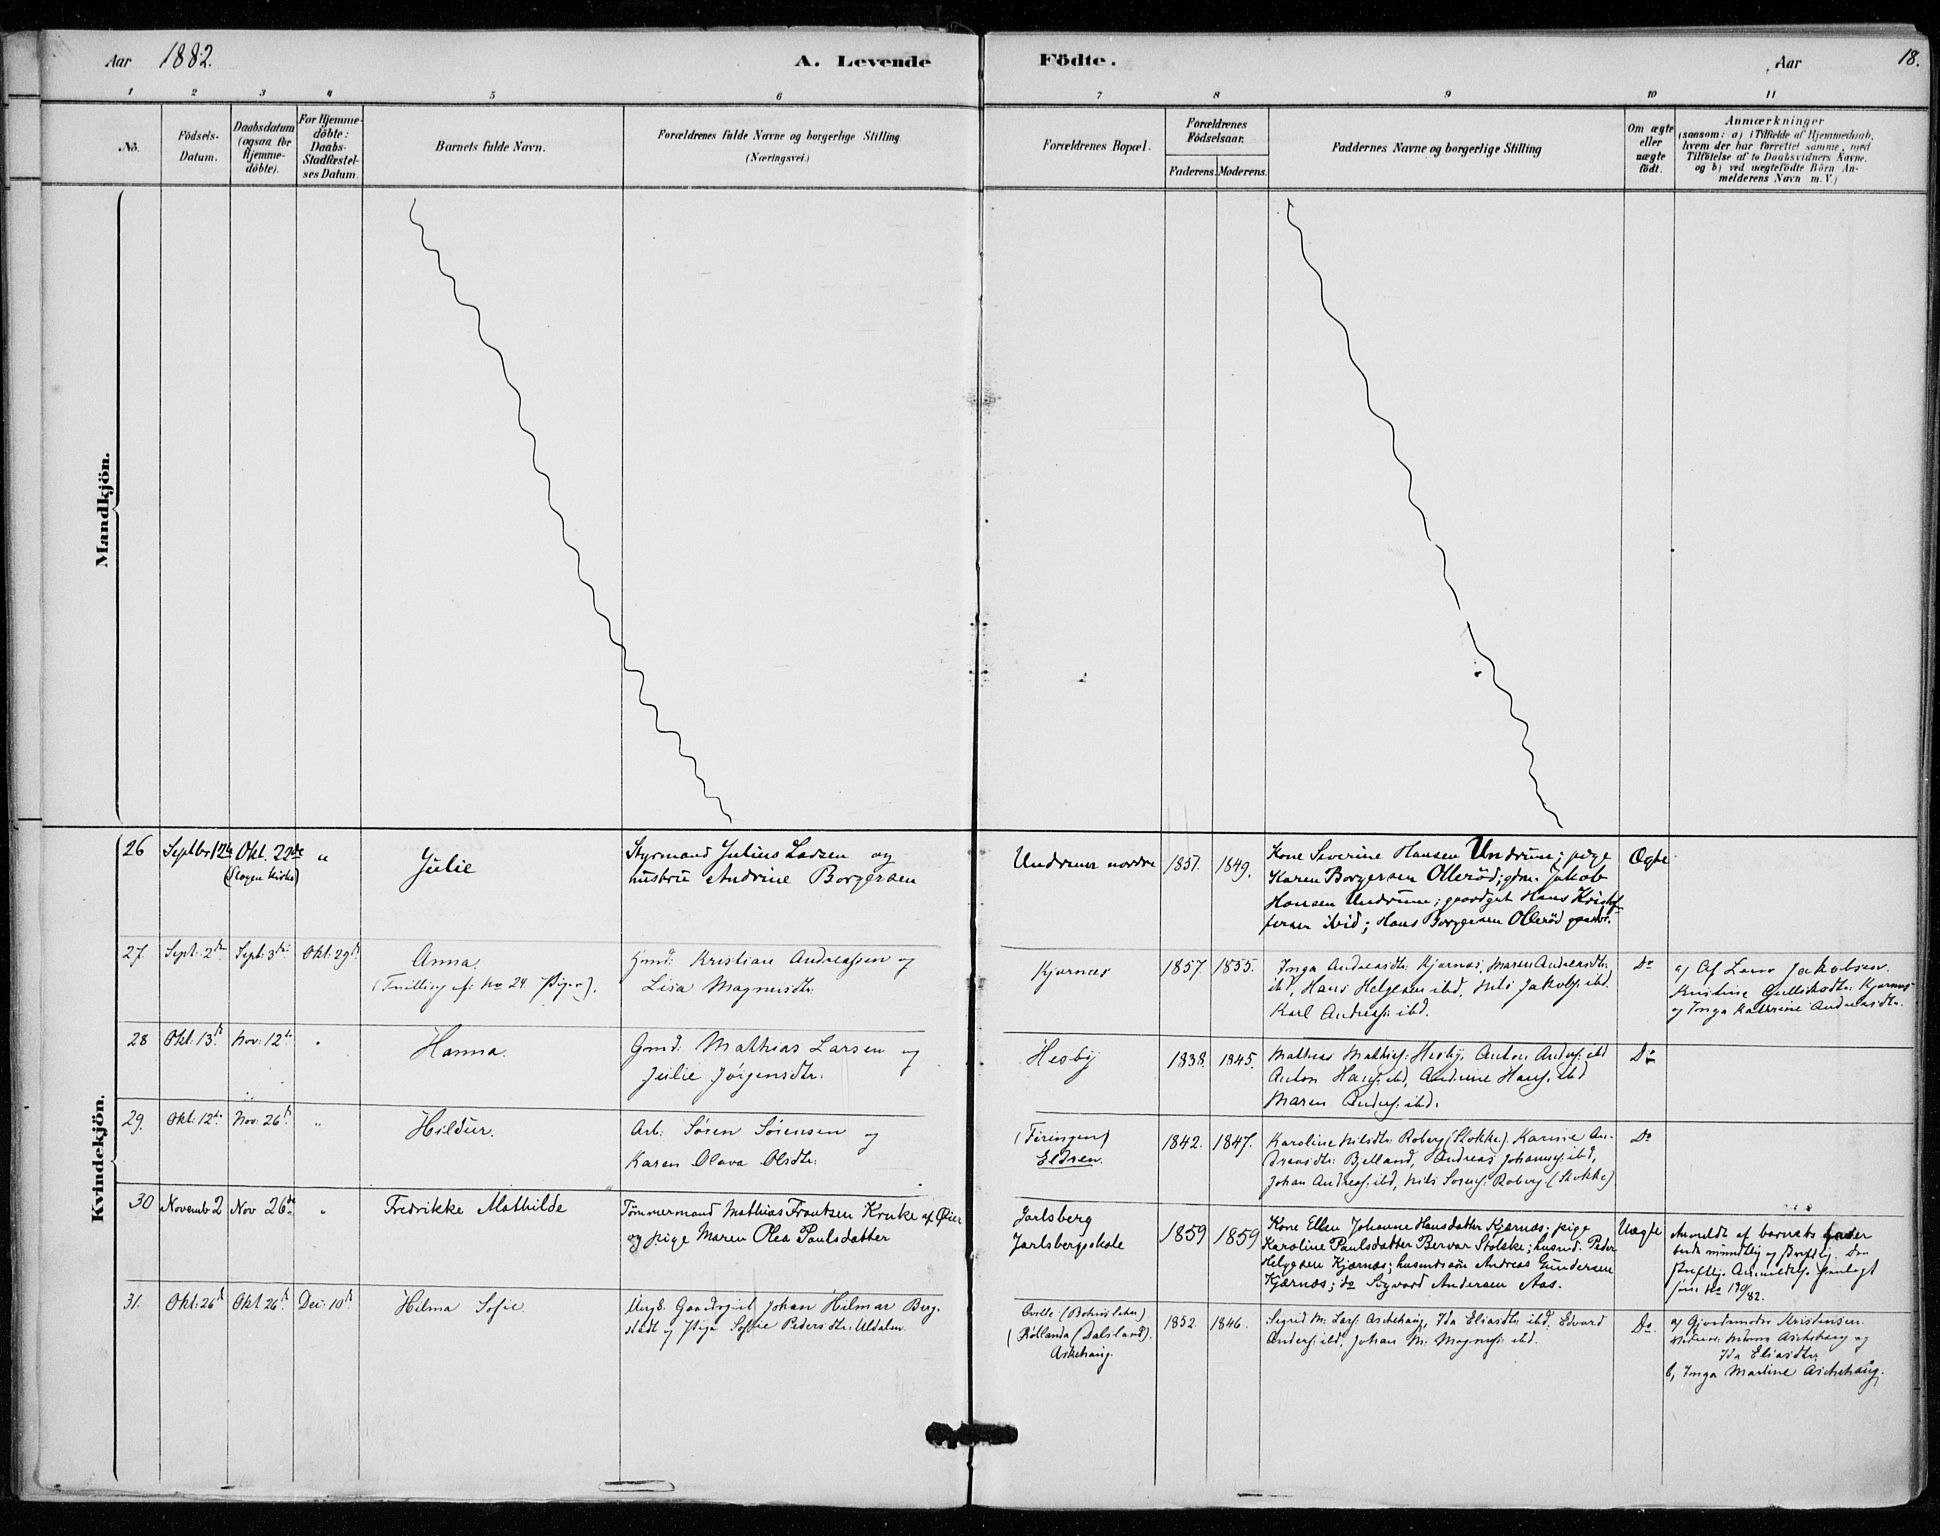 Aar 1882.
A. Levende Födte.
Aar
18.
1 2 3 4 5 6 7 8 9 10 11
No.
Födsels-
Datum.
Daabsdatum
(ogsaa for
Hjemme-
döbte).
For Hjemme-
döbte:
Daabs-
Stadfæstel-
ses Datum.
Barnets fulde Navn.
Forældrenes fulde Navne og borgerlige Stilling
(Næringsvei.)
Forældrenes Bopæl.
Forældrenes
Födselsaar.
Faderens. Moderens.
Faddernes Navne og borgerlige Stilling
Om ægte
eller
uægte
födt.
Anmærkninger
(saasom: a) i Tilfælde af Hjemmedaab,
hvem der har forrettet samme, med
Tilföielse af to Daabsvidners Navne.
og b) ved uægtefödte Börn An-
melderens Navn m.V.)
Mandkjön.
Kvindekjön.
26 Septbr 12te Okt. 22de "
(Slagen Kirke)
Julie
Styrmand Julius Larsen og
hustru Andrine Borgersen
Undrum nordre
1851. 1849.
Kone Severine Hansen Undrum; pige
Karen Borgersen Ollerød; gdm. Jakob
Hansen Undrum; gaardgut Hans Kristof
fersen ibid; Hans Borgersen Ollerød
Ægte
27 Sept: 2den Sept: 3die Okt: 29de
Anna.
(Tvilling cf: No 24 Piger).
Gmd: Kristian Andreassen og
Lisa Magnusdtr:
Kjærnæs
1857. 1855.
Inga Andreasdtr: Kjærnæs, Maren Andreasdtr:
ibd, Hans Helgesen ibd, Nils Jakobs. ibd.
Karl Andreas: ibd.
Do
a) Af Jakobsen.
Kristine Gulliksdtr: Kjærnæs
og Inga Kathrine Andreasdtr.
28 Okt: 13de Nov: 12te "
Hanna.
Gmd: Mathias Larsen og
Julie Jørgensdtr:
Hesby
1838. 1845.
Mathias Mathias: Hesby. Anton Anders: ibd
Anton Hans: ibd, Andrine Hans: ibd
Maren Anders: ibd.
Do
29. Okt: 12te Nov: 26de "
Hildur.
Arb: Søren Sørensen og
Karen Olava Olsdtr:
(Føringen)
Eldren.
1842. 1847.
Karoline Nilsdtr: Roberg (Stokke). Karine An-
dreasdtr: Bjelland, Andreas Johannes: ibd,
Johan Andreas: ibd, Nils Sørens: Roberg (Stokke)
Do
30 Novemb 2 Nov 26de "
Fredrikke Mathilde
Tømmermand Mathias Frantsen Kruke af Øier
og pige Maren Olea Paulsdatter
Jarlsberg
Jarlsbergskole
1859 1859
Kone Ellen Johanne Hansdatter Kjærnæs; pige
Karoline Paulsdatter Stokke; husmd. Peder
Helgesen Kjærnæs; husmdssøn Andreas Gundersen
Kjærnæs; do Sigvard Andersen Aas.
Uægte
Anmeldt af barnets fader
både mundtlig og skriftlig. Den
skriftlig. Anmeldels. fremlagt
No 190/82.
31. Okt: 26de Okt 26de Dec: 10de
Hilma Sofie
Ungk. Gaardsgut Johan Hilmar Berg-
stedt og Pige Soffie Pedersdtr: Uldalen.
(Bohuslehn)
(Röllanda (Dalsland).
Askehaug.
1852. 1846.
Sigrid M: Lars: Aschehaug, Ida Eliasdtr: ibd. Edvard
Anders: ibd, Johan M: Magnus: ibd.
Do.
a) Gjordemoder Kristensen.
Aschehaug og
Ida Eliasdtr:
b, Inga Martine Aschehaug.